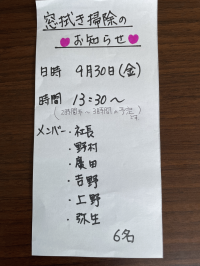 窓拭き掃除の
お知らせ
日時 9月30日(金)
時間 13:30〜
(2時間半〜3時間の予定です。)
メンバー・社長
・野村
・廣田
・吉野
・上野
・弥生
6名